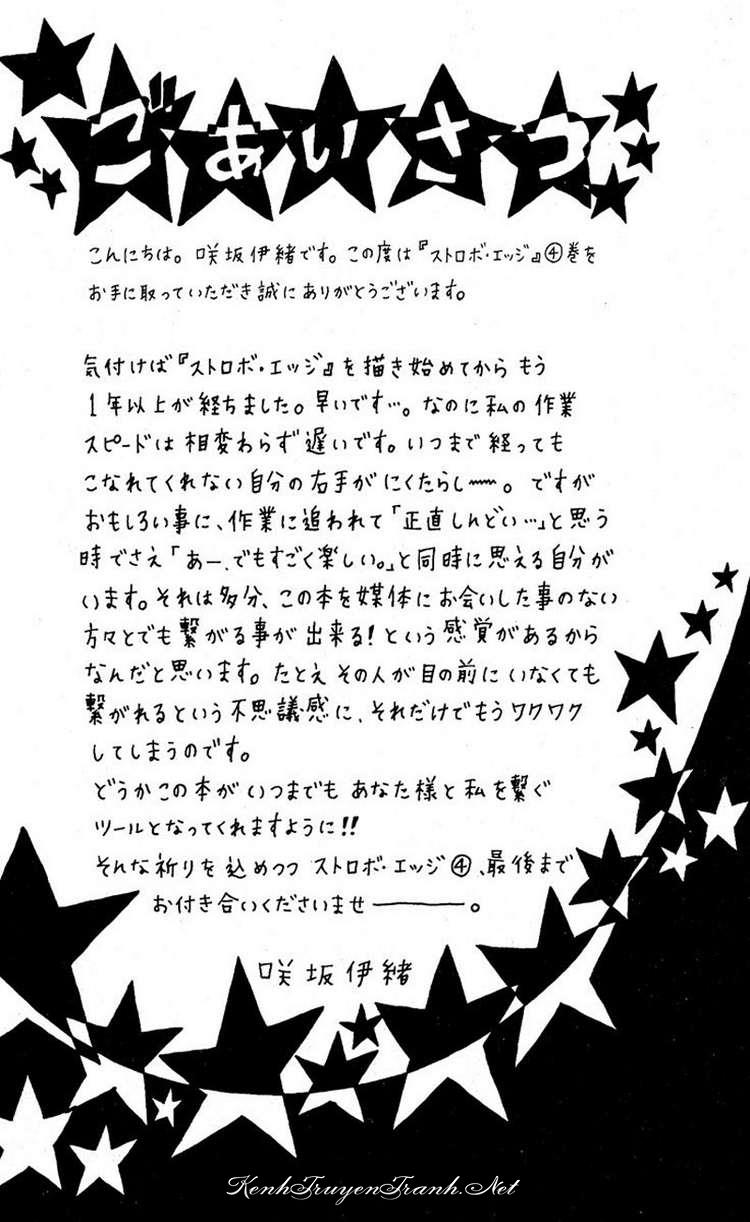 ごあいさつ
こんにちは。咲坂伊緒です。この度は『ストロボ・エッジ』④巻を
お手に取っていただき誠にありがとうございます。
気付けば『ストロボ・エッジ』を描き始めてからもう
1年以上が経ちました。早いです…。なのに私の作業
スピードは相変わらず遅いです。いつまで経っても
こなれてくれない自分の右手がにくたらし〰。ですが
おもしろい事に、作業に追われて「正直しんどい…」と思う
時でさえ「あー、でもすごく楽しい。」と同時に思える自分が
います。それは多分、この本を媒体にお会いした事のない
方々とでも繋がる事が出来る!という感覚があるから
なんだと思います。たとえその人が目の前にいなくても
繋がれるという不思議感に、それだけでもうワクワク
してしまうのです。
どうかこの本がいつまでもあなた様と私を繋ぐ
ツールとなってくれますように!!
そんな祈りを込めつつストロボ・エッジ④、最後まで
お付き合いくださいませ―――。
咲坂伊緒
KenhTruyenTranh.Net